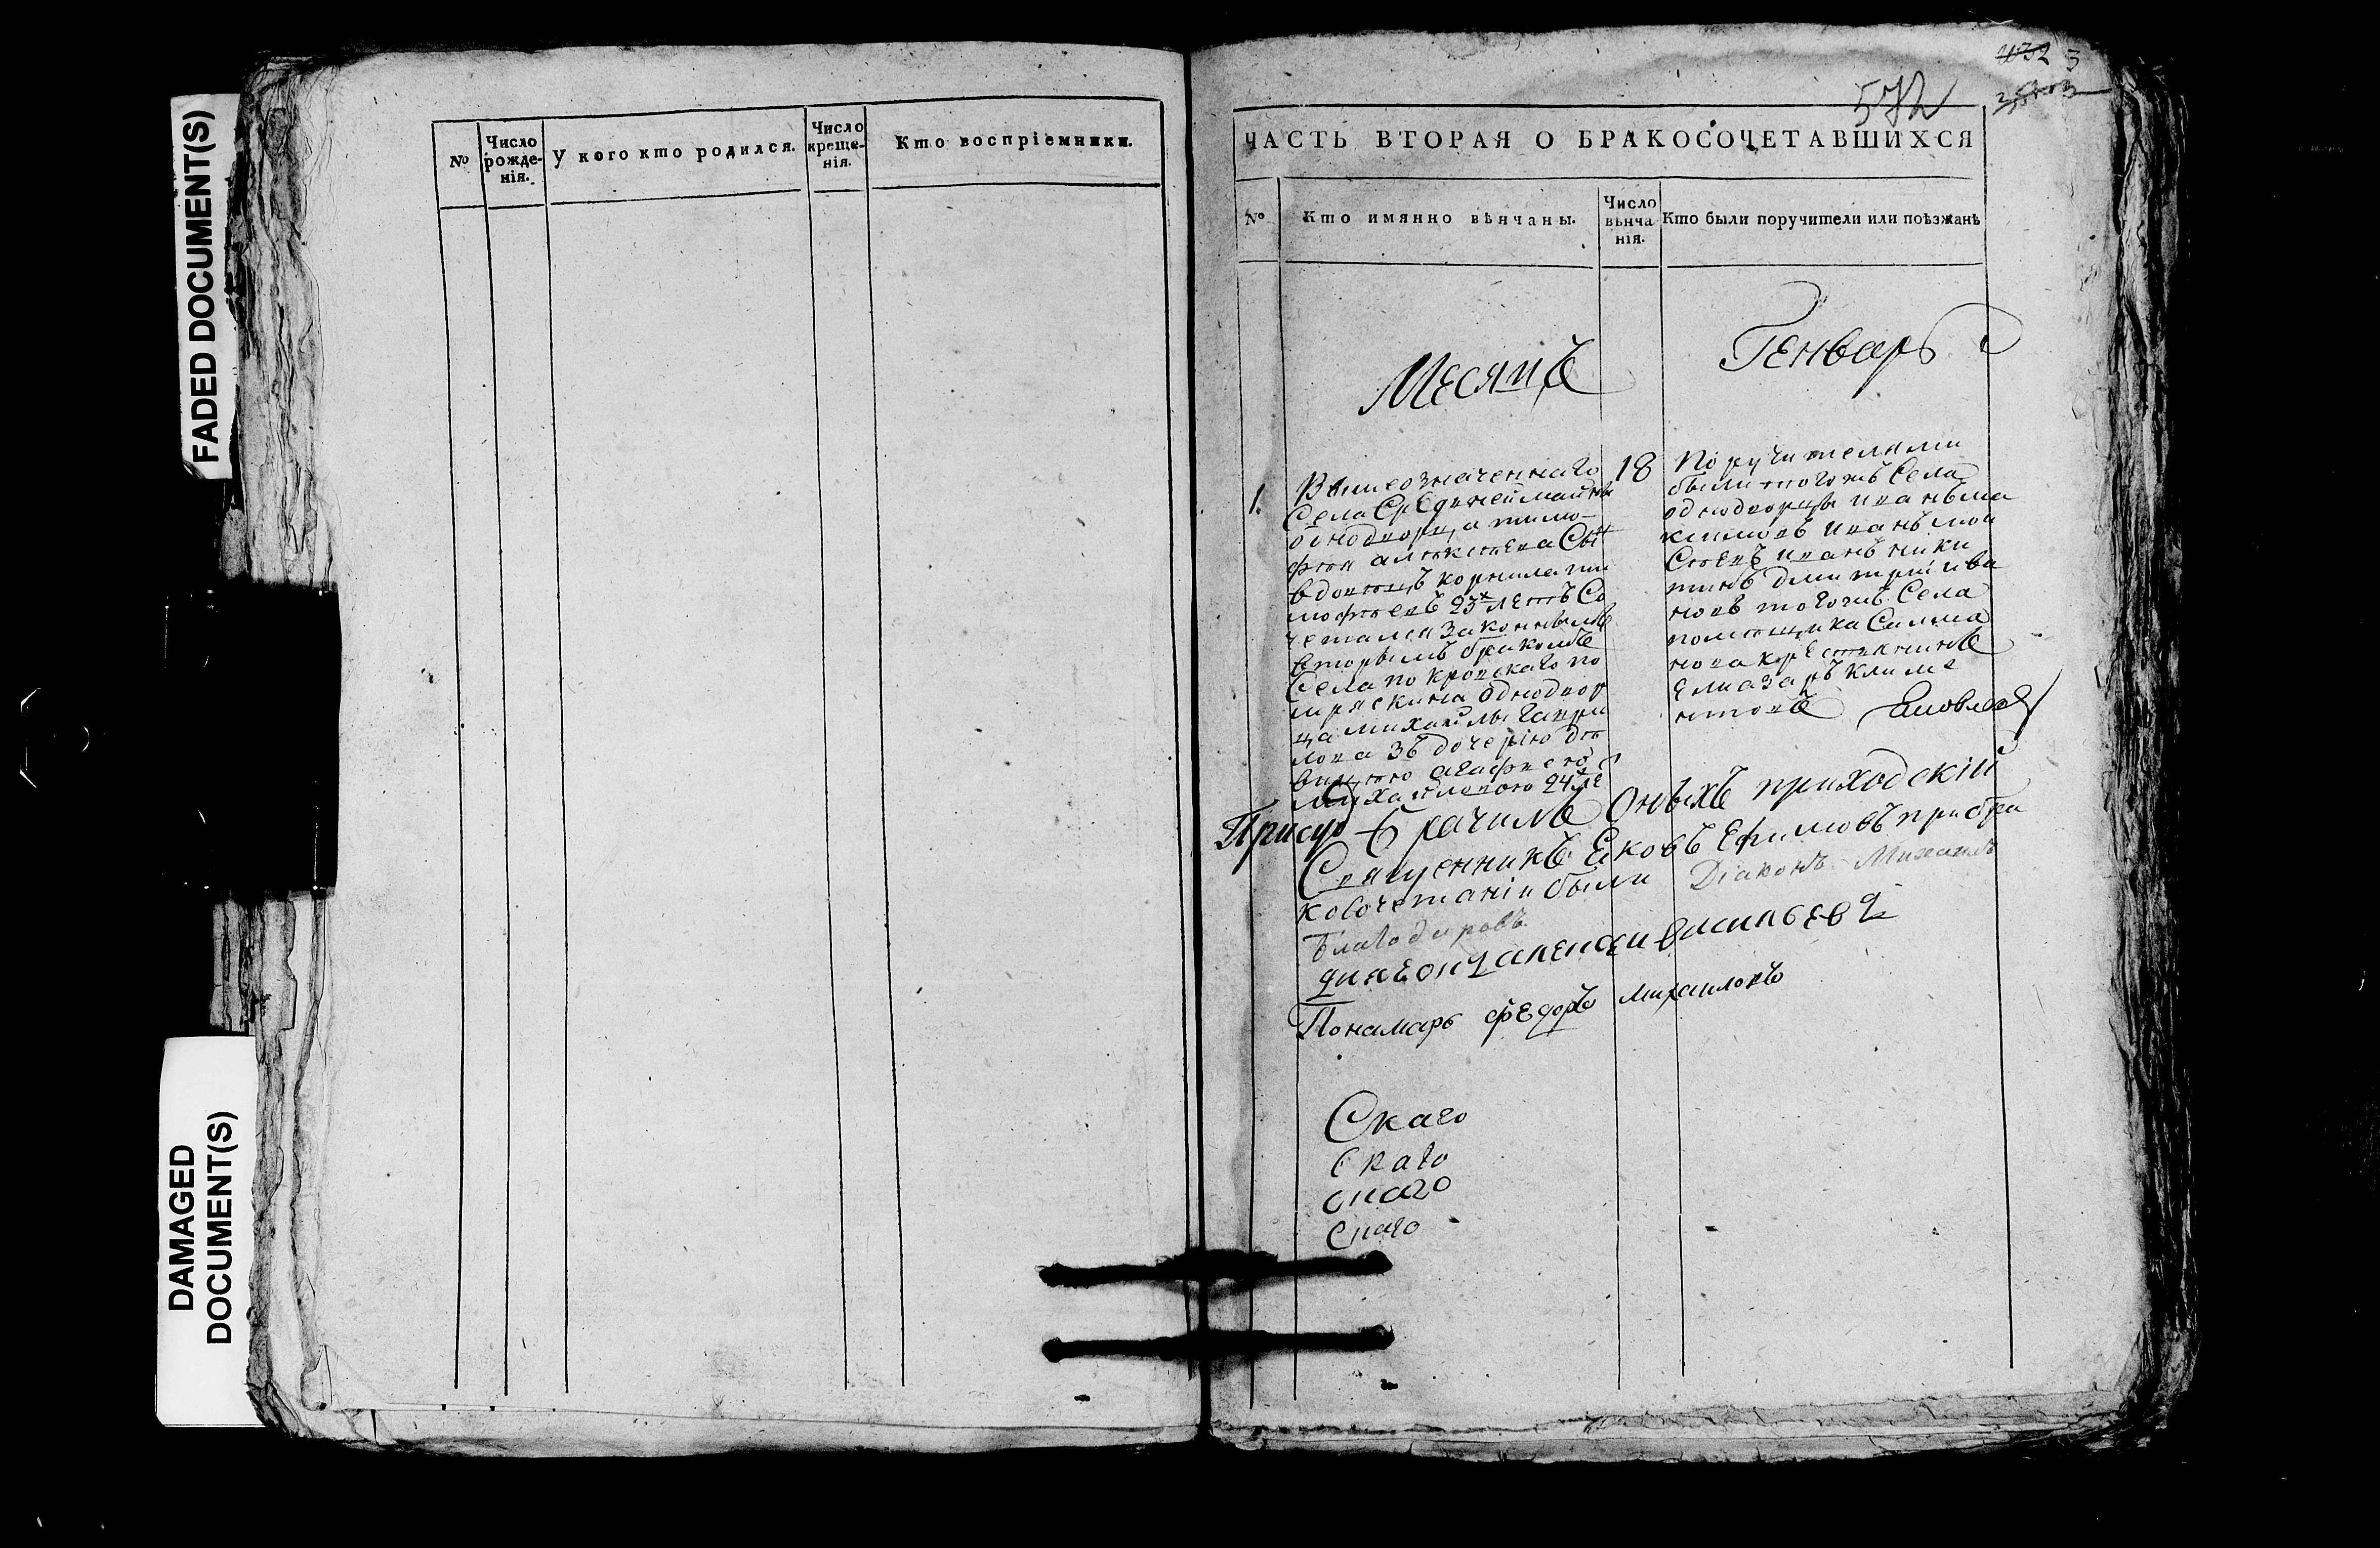 FADED DOCUMENT(S)
DAMAGED
DOCUMENT(S)
№
Число
рожде-
нія.
У кого кто родился.
Число
креще-
нія.
Кто воспріемники.
3
572
ЧАСТЬ ВТОРАЯ О БРАКОСОЧЕТАВШИХСЯ
№
Кто имянно вѣнчаны.
Число
вѣнча
нія.
Кто были поручители или поѣзжанѣ
Месяцъ
Генварь
1.
Вышеозначеннаго
Села Средней майны
однодворца тимо-
фея алѣксѣева Сынъ
вдовецъ корнила ти
мофѣевъ 23х лѣтъ Со
четался законнымъ
вторымъ бракомъ
Села покровскаго по
мряскина однодвор
ца михайлы гаври
лова зъ дочерію дѣ
вицею агафіею
Михайловою 24 ле
18
Поручителями
были тогожъ Села
однодворцы иванъ ма
ксимовъ иванъ мои
Сѣевъ иванъ ники
тинъ дмитрий ива
новъ тогожъ Села
помещика
нова крестьянинъ
елиазаръ климе
нтовъ
брачилъ оныхъ приходскій
Священникъ Яковъ Ефимовъ при бра
косочетаніи были Діаконъ Михаилъ
Благодаровъ
васильевъ
Понамарь федоръ михаиловъ
Скаго
Скаго
Скаго
Скаго